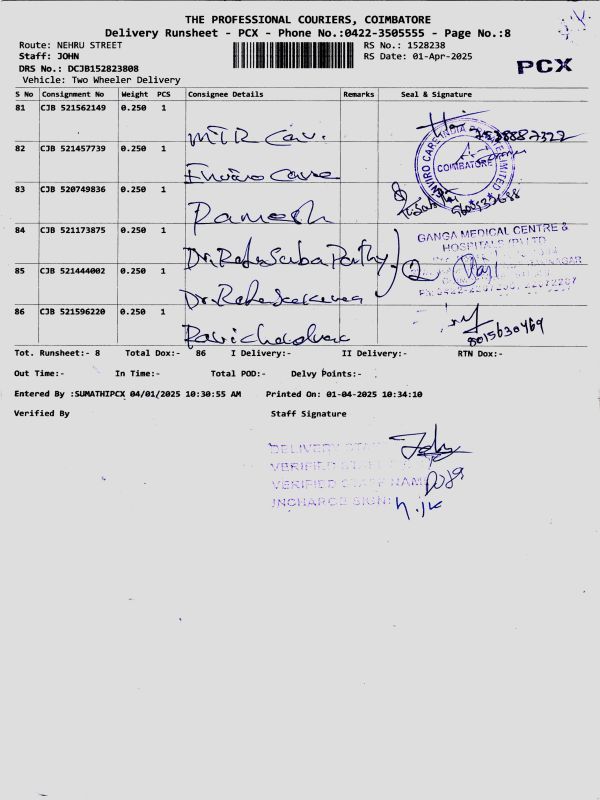 THE PROFESSIONAL COURIERS, COIMBATORE
Delivery Runsheet - PCX - Phone No.:0422-3505555 - Page No.:8
Route: NEHRU STREET
RS No.: 1528238
Staff: JOHN
RS Date: 01-Apr-2025
DRS No.: DCJB152823808
PCX
Vehicle: Two Wheeler Delivery
S No Consignment No Weight PCS Consignee Details Remarks Seal & Signature
81 CJB 521562149 0.250 1
MTR Cav.
82 CJB 521457739 0.250 1
Enviro Care
ENVIRO CARE INDIA PRIVATE LIMITED
COIMBATORE
83 CJB 520749836 0.250 1
Ramesh
84 CJB 521173875 0.250 1
Dr. Radha Saba Parthy
GANGA MEDICAL CENTRE &
HOSPITALS (P) LTD
85 CJB 521444002 0.250 1
2
86 CJB 521596220 0.250 1
8015630469
Tot. Runsheet:- 8 Total Dox:- 86 I Delivery:- II Delivery:- RTN Dox:-
Out Time:- In Time:- Total POD:- Delvy Points:-
Entered By :SUMATHIPCX 04/01/2025 10:30:55 AM Printed On: 01-04-2025 10:34:10
Verified By Staff Signature
DELIVERY STAFF
VERIFIED STAFF
VERIFIED STAFF NAME
INCHARGE SIGN: